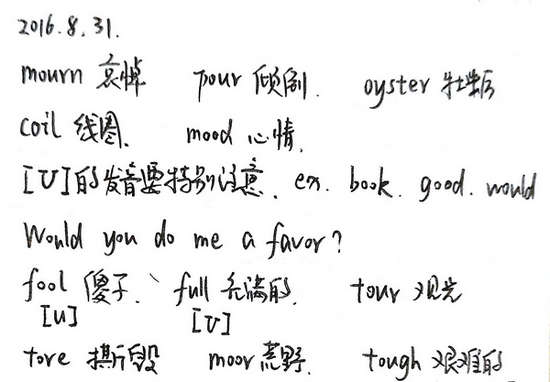 2016.8.31.
mourn 哀悼 pour 倾倒. oyster 牡蛎
coil 线圈. mood 心情.
[ʊ]的发音要特别注意. ex. book. good. would
Would you do me a favor?
fool 傻子. full 充满的. tour 观光
[u] [ʊ]
tore 撕毁 moor 荒野. tough 艰难的